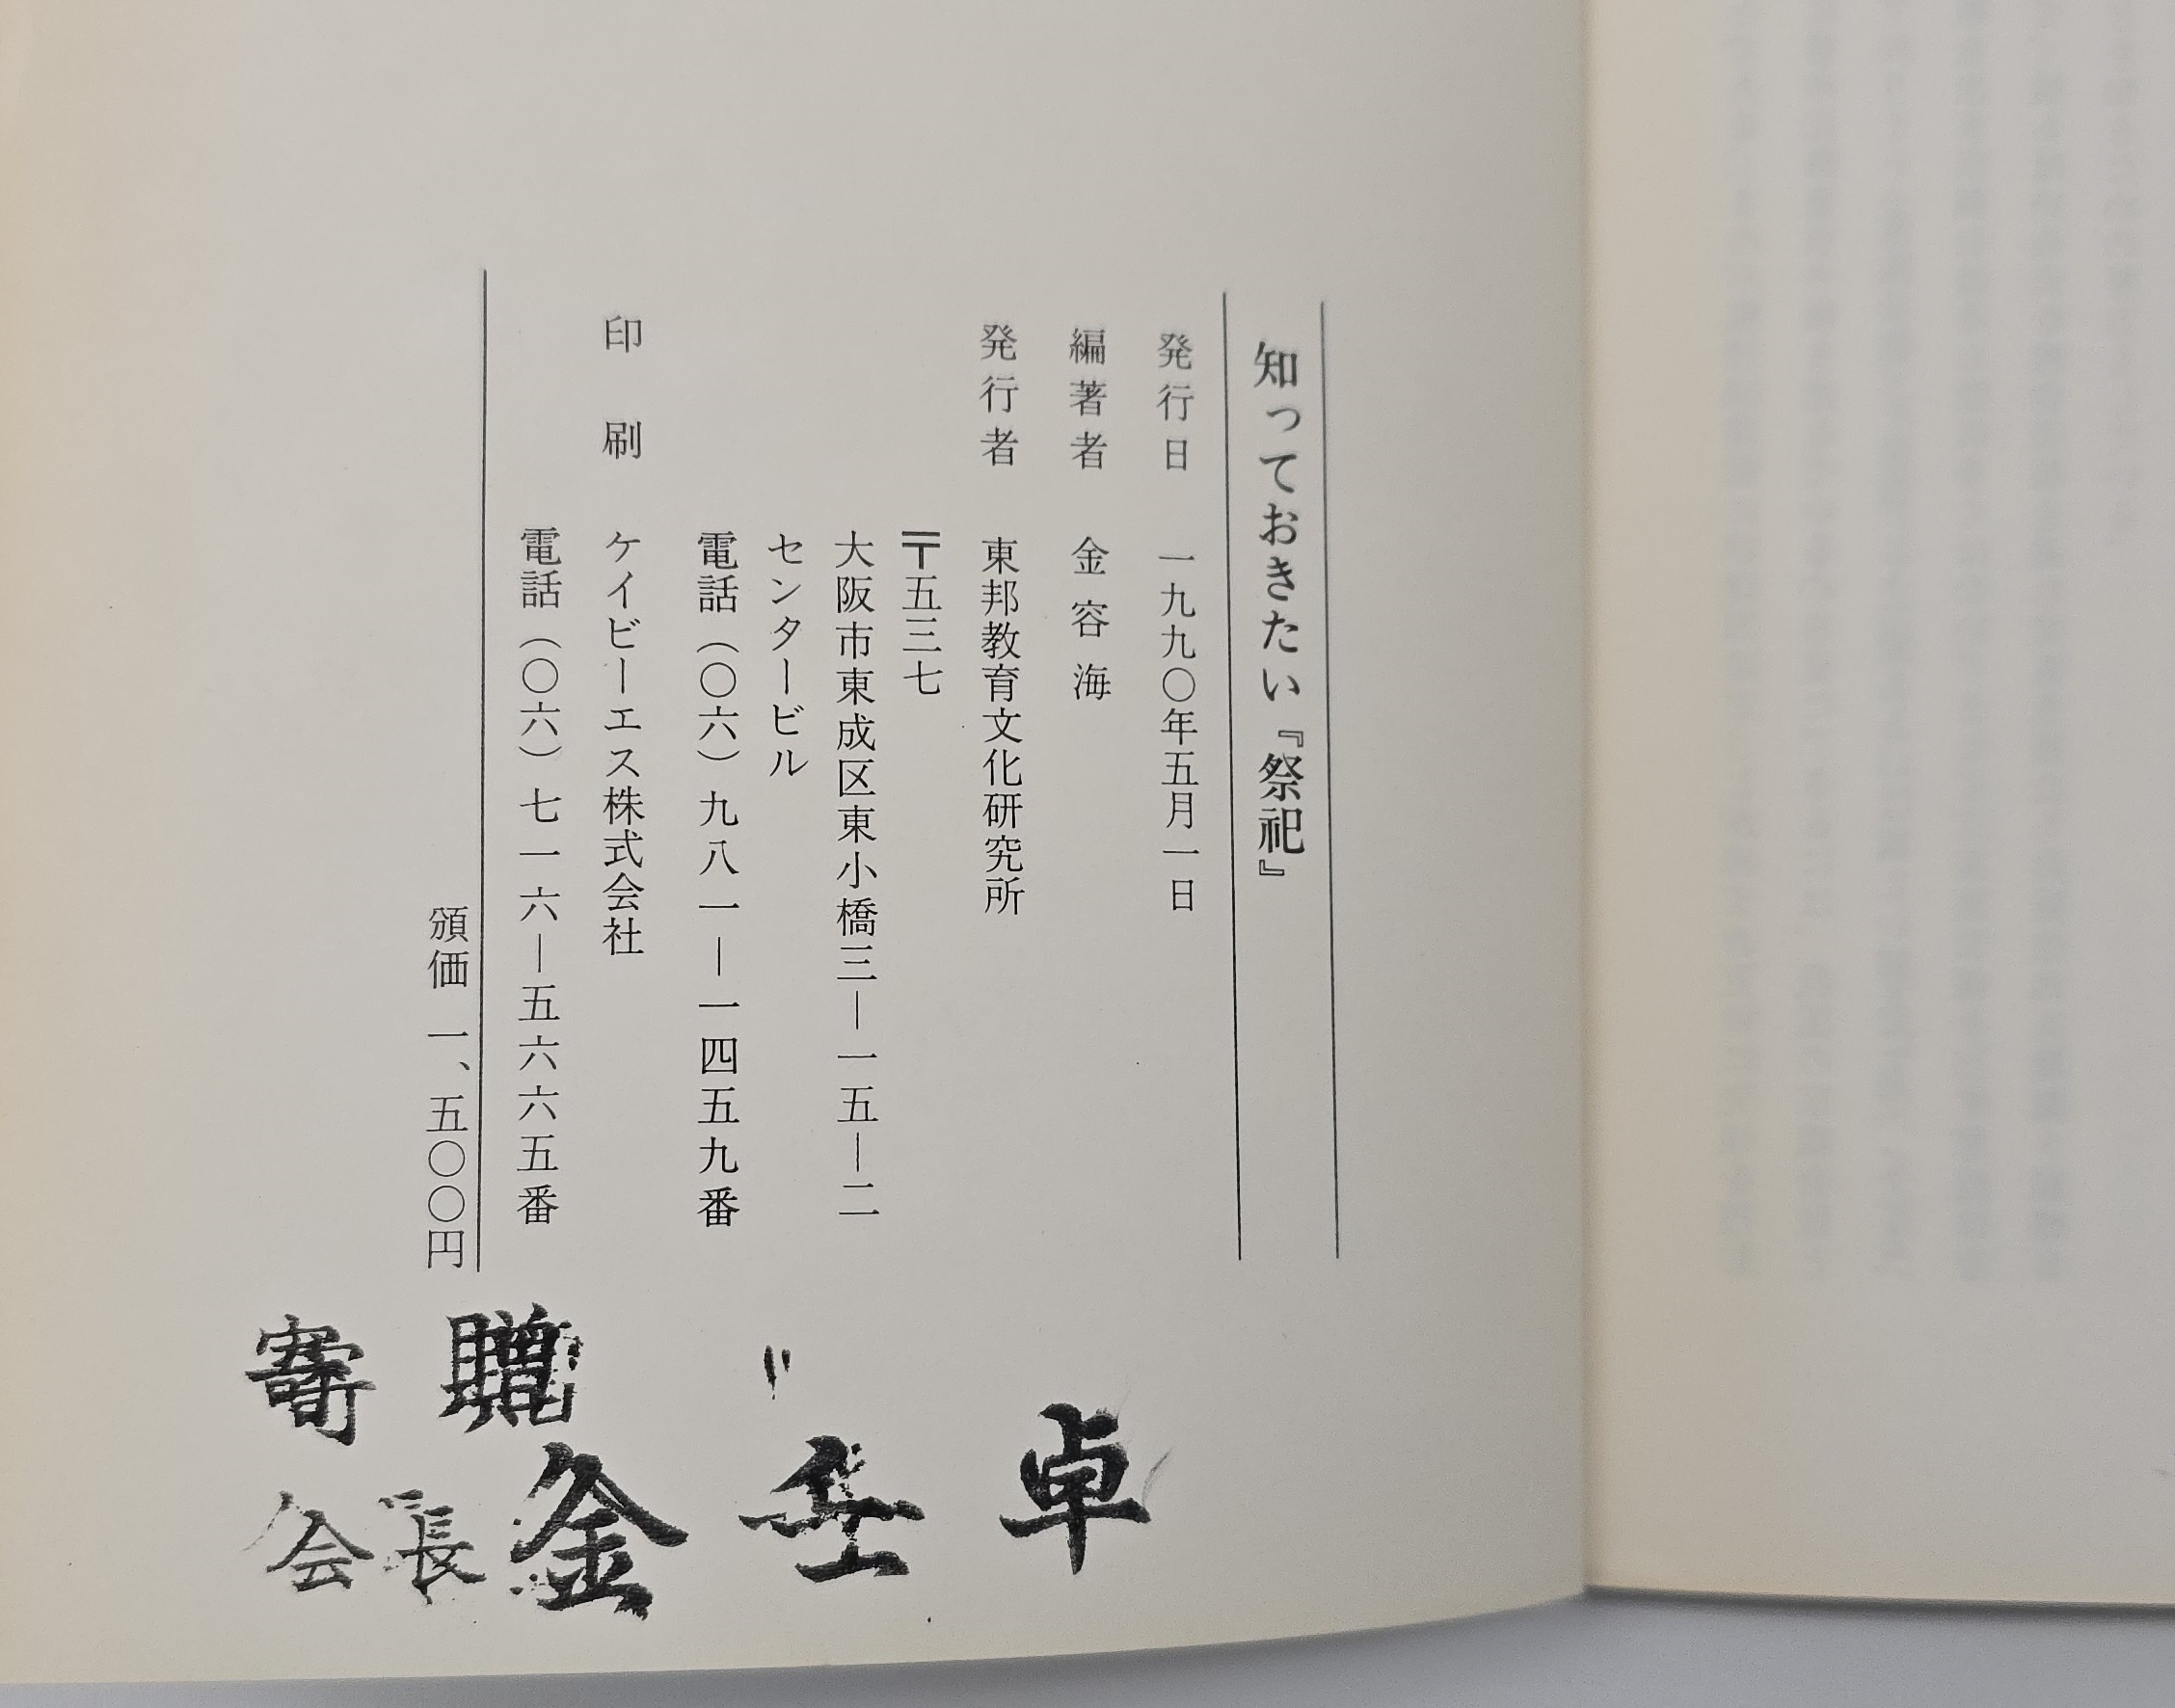 知っておきたい『祭祀』
発行日　一九九〇年五月一日
編著者　金容海
発行者　東邦教育文化研究所
〒五三七
大阪市東成区東小橋三―一五―二
センタービル
電話（〇六）九八一―一四五九番
印刷　ケイビーエス株式会社
電話（〇六）七一六―五六六五番
頒価　一、五〇〇円
寄贈
会長 金 卓